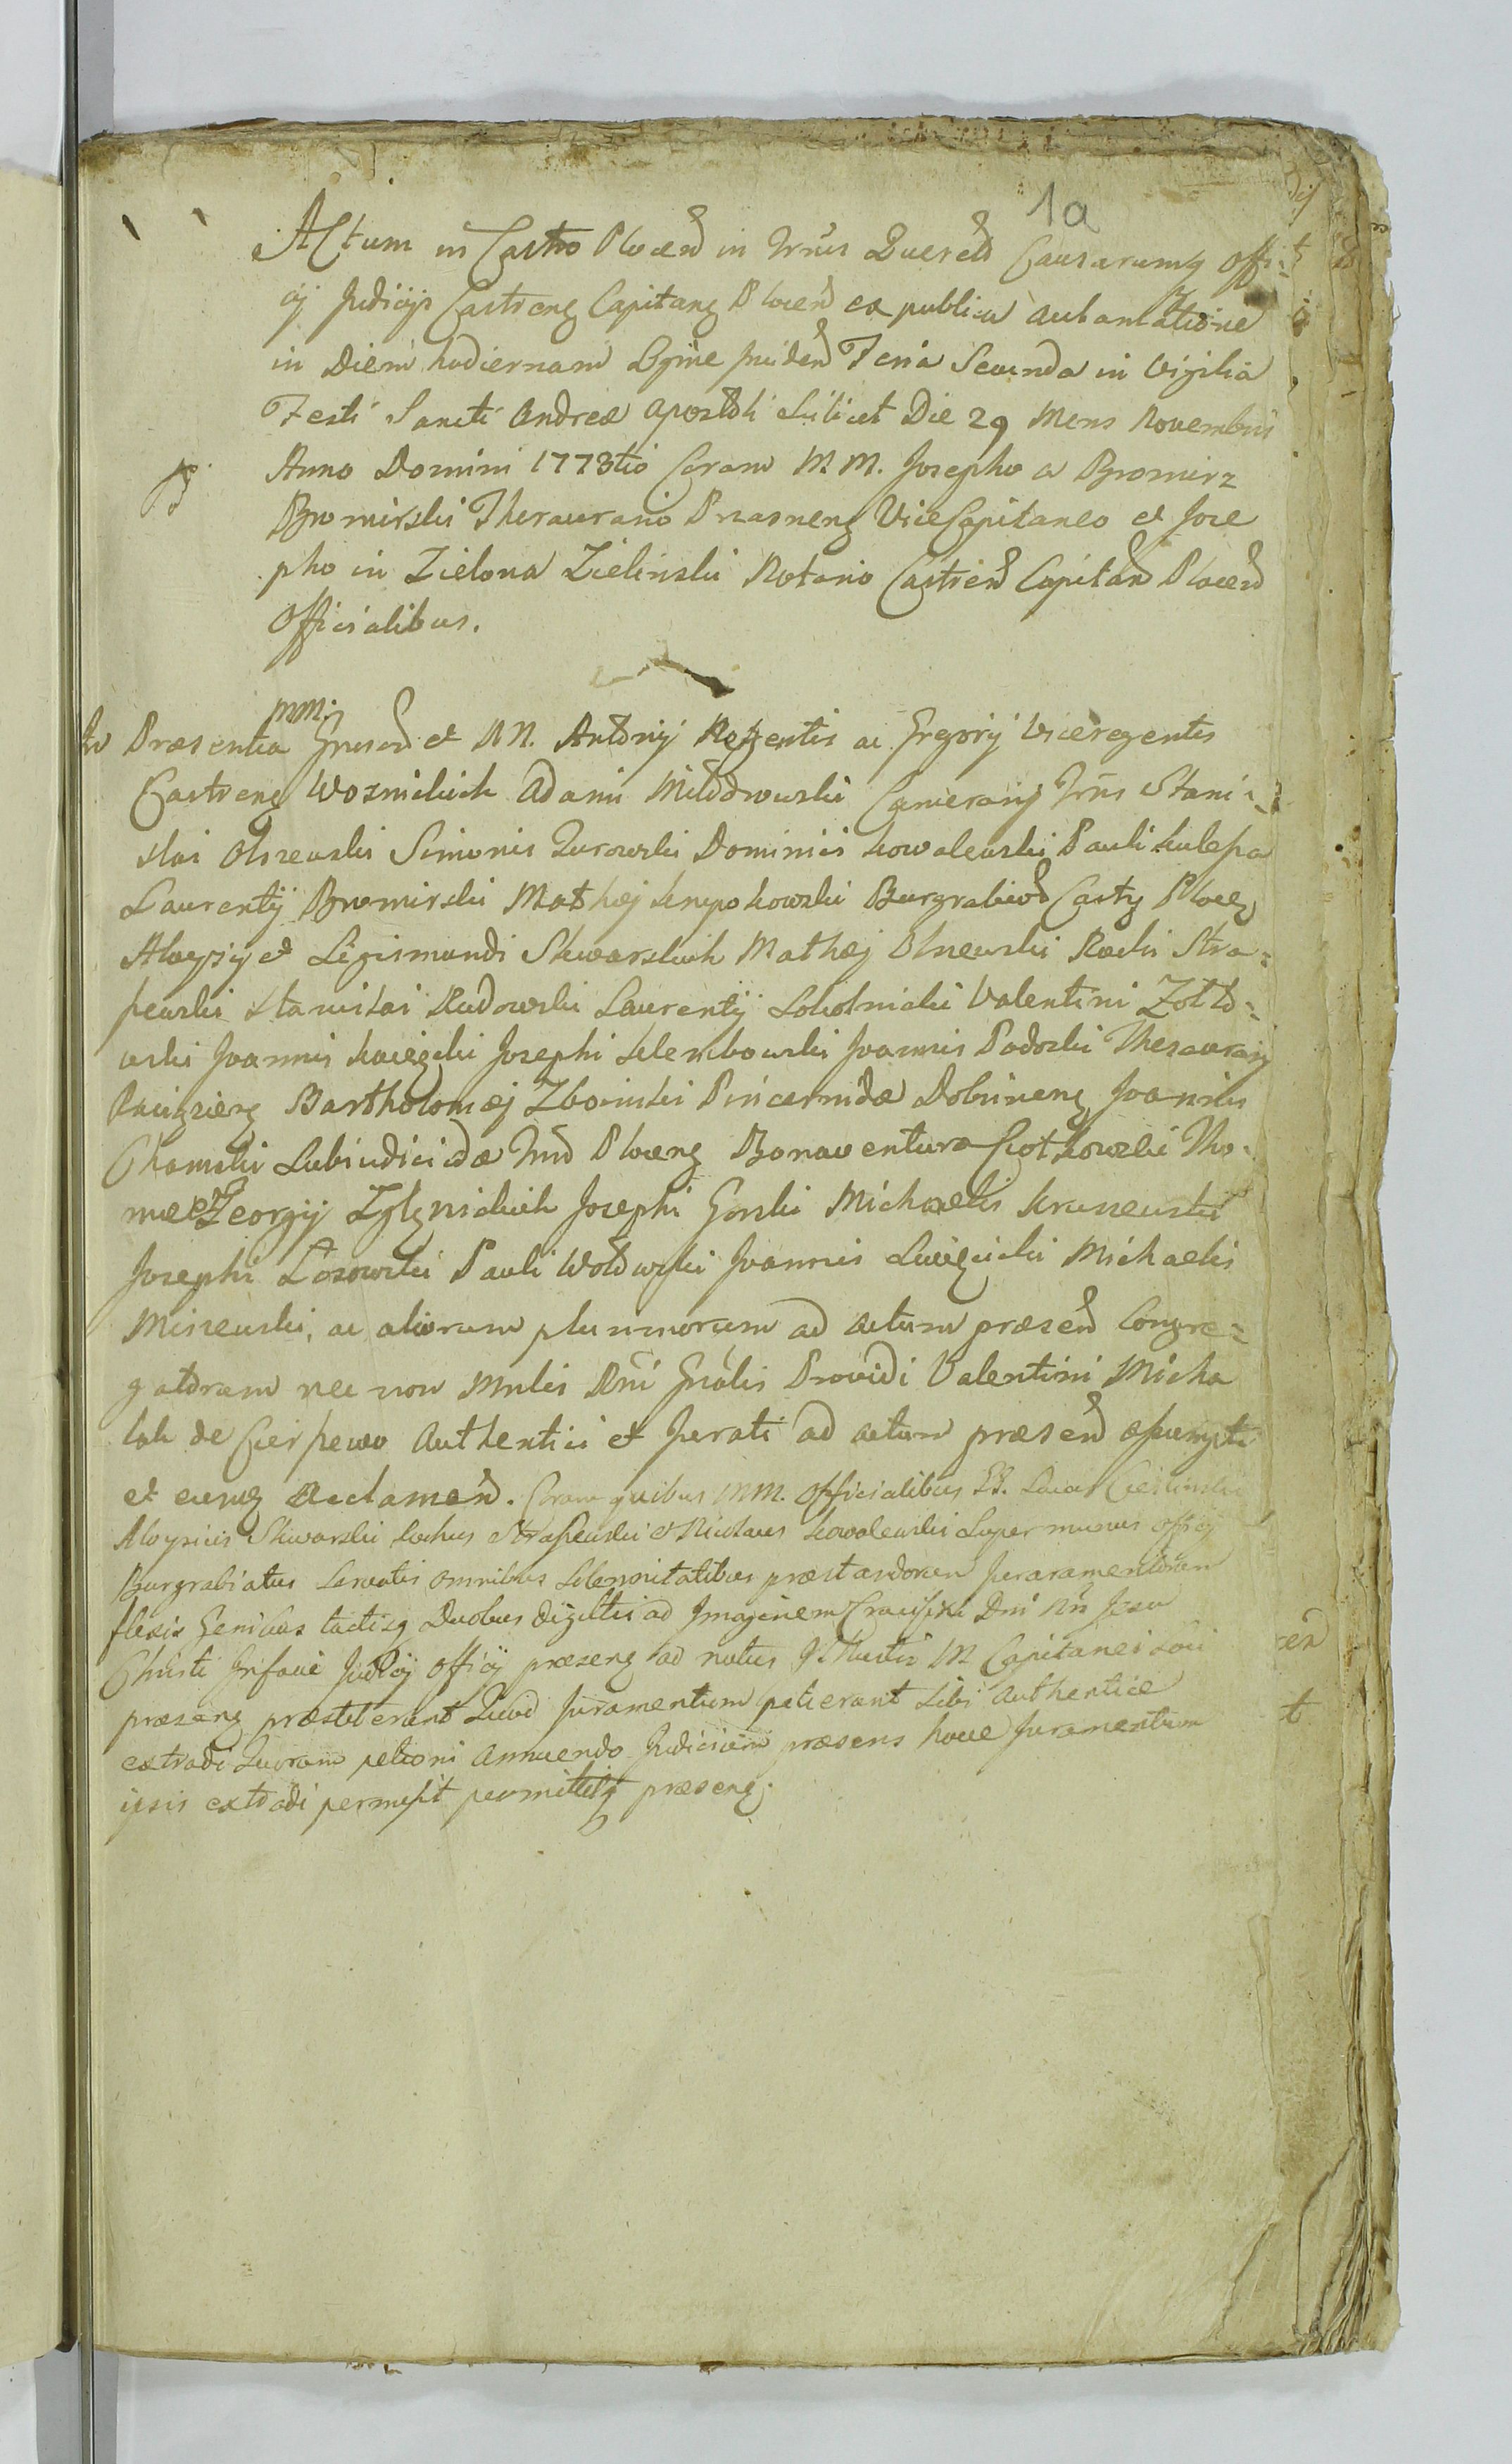 1a
Actum in Castro Plocen in Trnis Querels Causarumq Offi-
cij Judicijs Castreng Capitang Plocen ex publica aclamatione
in Diem hodiernam Lgme inciden Feria Secunda in Vigilia
Festi Sancti Andreæ Apostoli Scilicet Die 29 Mens Novembris
Anno Domini 1773tio Coram M. M. Josepho a Bromirz
Bromirski Thesaurario Prasneng ViceCapitaneo et Jose
pho in Zielona Zielinski Notario Castren Capitan Plocen
Officialibus.
mm.
Præsentia Gnrsd et NN. Antonij Regentis ac Gregorij Viceregentis
Castreng Woznickich Adami Milodrowski Camerarij Trnis Stani-
slai Olszewski Simonis Zurowski Dominici Kowalewski Pauli Kulepa
Laurentij Bromirski Mathæj Krupokowski Burgrabiod Casty Plocg
Aloysij et Sigismundi Skwarskich Mathæj Olszewski Rochi Stra-
pewski Stanislai Rudowski Laurentij Sokolnicki Valentini Zolto-
wski Joannis Koiezki Josephi Klembowski Joannis Podoski Thesaurarij
Raciązieng Bartholomæj Zboinski Pincernidæ Dobrineng Joannis
Chamski Subiudicidæ Trnd Ploceng Bonaventura Ciotkowski Tho-
mæ et Georgij Zglznickich Josephi Gorski Michaelis Kruszewski
Josephi Lozowski Pauli Wolowski Joannis Swięcicki Michaelis
Miszewski, ac aliorum plurimorum ad actum præsen Congre-
gatorum nec non Mnlis Rni Gnalis Providi Valentini Micha
lak de Cierpewo Authentici et Jurati ad actum præsen assumpti
et cunq Reclamen. Coram quibus MM. Officialibus GG. Lucas Cieslinski
Aloysius Skwarski Rochus Strapewski et Nicolaus Kowalewski Super munus officij
Burgrabiatus Servatis omnibus Solemnitatibus præstandorum Juraramentorum
flexis Genibus tactisq Duobus digittis ad Imaginem Crucifixi Dni Nri Jesu
Christi Infacie Judicij Officij præseng ad notus Illustris M Capitanei Loci
præseng præstiterunt Quod Juramentum petierunt Sibi Authentice
extradi Quorum petioni Annuendo Judicium præsens hocce Juramentum
ipsis extradi permisit permittitq præseng.